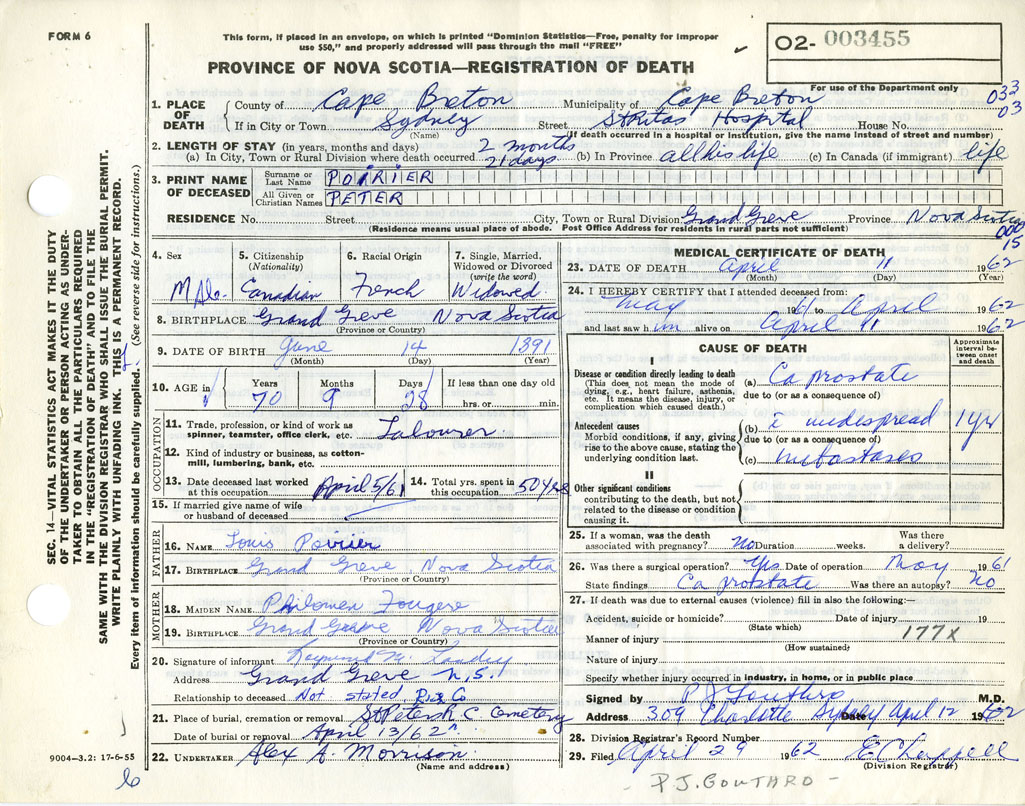 FORM 6
This form, if placed in an envelope, on which is printed "Dominion Statistics—Free, penalty for improper
use $50," and properly addressed will pass through the mail "FREE"
O2- 003455
PROVINCE OF NOVA SCOTIA—REGISTRATION OF DEATH
For use of the Department only
033
03
1. PLACE OF DEATH County of Cape Breton Municipality of Cape Breton
If in City or Town Sydney Street St Ritas Hospital House No.
(Name) (If death occurred in a hospital or institution, give the name instead of street and number)
2. LENGTH OF STAY (in years, months and days) 2 months
(a) In City, Town or Rural Division where death occurred 21 days (b) In Province all his life (c) In Canada (if immigrant) life
3. PRINT NAME OF DECEASED Surname or Last Name POIRIER
All Given or Christian Names PETER
RESIDENCE No. Street City, Town or Rural Division Grand Greve Province Nova Scotia
(Residence means usual place of abode. Post Office Address for residents in rural parts not sufficient)
000
15
4. Sex 5. Citizenship (Nationality) 6. Racial Origin 7. Single, Married, Widowed or Divorced (write the word)
Male Canadian French Widowed
8. BIRTHPLACE Grand Greve Nova Scotia
(Province or Country)
9. DATE OF BIRTH June 14 1891
(Month) (Day) (Year)
10. AGE in Years Months Days If less than one day old
70 9 28 hrs. or min.
OCCUPATION
11. Trade, profession, or kind of work as
spinner, teamster, office clerk, etc. Labourer
12. Kind of industry or business, as cotton-
mill, lumbering, bank, etc.
13. Date deceased last worked at this occupation April 5/61 14. Total yrs. spent in this occupation 50 yrs
15. If married give name of wife
or husband of deceased
FATHER
16. NAME Louis Poirier
17. BIRTHPLACE Grand Greve Nova Scotia
(Province or Country)
MOTHER
18. MAIDEN NAME Philomen Fougere
19. BIRTHPLACE Grand Greve Nova Scotia
(Province or Country)
20. Signature of informant Raymond M. Landry
Address Grand Greve N.S.
Relationship to deceased Not stated
21. Place of burial, cremation or removal St Peters R C Cemetery
Date of burial or removal April 13/62
22. UNDERTAKER Alex A Morrison
(Name and address)
MEDICAL CERTIFICATE OF DEATH
23. DATE OF DEATH April 11 1962
(Month) (Day) (Year)
24. I HEREBY CERTIFY that I attended deceased from:
May 1961 to April 1962
and last saw him alive on April 11 1962
CAUSE OF DEATH
Approximate interval between onset and death
I
Disease or condition directly leading to death
(This does not mean the mode of
dying, e.g., heart failure, asthenia,
etc. It means the disease, injury, or
complication which caused death.)
(a) Ca prostate
due to (or as a consequence of)
Antecedent causes
Morbid conditions, if any, giving
rise to the above cause, stating the
underlying condition last.
(b) widespread 1 yr
due to (or as a consequence of)
(c) metastases
II
Other significant conditions
contributing to the death, but not
related to the disease or condition
causing it.
25. If a woman, was the death associated with pregnancy? No Duration weeks. Was there a delivery?
26. Was there a surgical operation? Yes Date of operation May 1961
State findings Ca prostate Was there an autopsy? No
27. If death was due to external causes (violence) fill in also the following:—
Accident, suicide or homicide? Date of injury 19
(State which)
Manner of injury 177X
(How sustained)
Nature of injury
Specify whether injury occurred in industry, in home, or in public place
Signed by P J Gouthro M.D.
Address 309 Charlotte Sydney Date April 12 1962
28. Division Registrar's Record Number
29. Filed April 29 1962 E Chappell
(Division Registrar)
- P.J. GOUTHRO -
SEC. 14—VITAL STATISTICS ACT MAKES IT THE DUTY
OF THE UNDERTAKER OR PERSON ACTING AS UNDER-
TAKER TO OBTAIN ALL THE PARTICULARS REQUIRED
IN THE "REGISTRATION OF DEATH" AND TO FILE THE
SAME WITH THE DIVISION REGISTRAR WHO SHALL ISSUE THE BURIAL PERMIT.
WRITE PLAINLY WITH UNFADING INK. THIS IS A PERMANENT RECORD.
Every item of information should be carefully supplied. (See reverse side for instructions.)
9004—3.2: 17-6-55
6